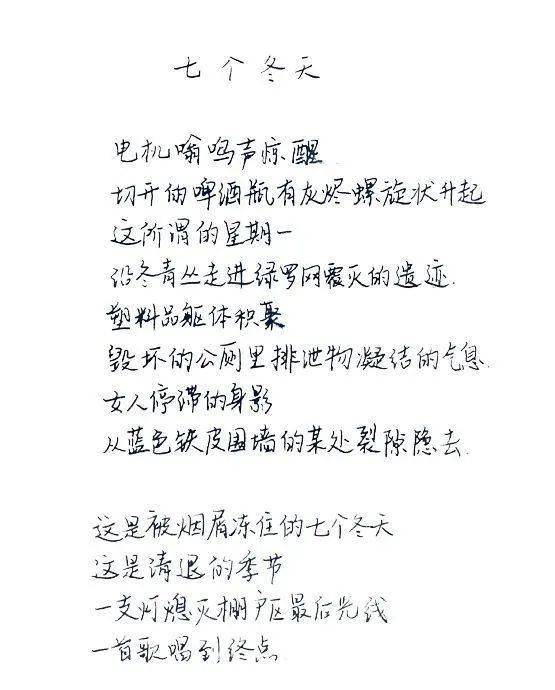 七个冬天
电机嗡鸣声惊醒
切开的啤酒瓶有灰烬螺旋状升起
这所谓的星期一
沿冬青丛走进绿罗网覆灭的遗迹
塑料品躯体积聚
毁坏的公厕里排泄物凝结的气息
女人停滞的身影
从蓝色铁皮围墙的某处裂隙隐去
这是被烟屑冻住的七个冬天
这是清退的季节
一支灯熄灭棚户区最后光线
一首歌唱到终点